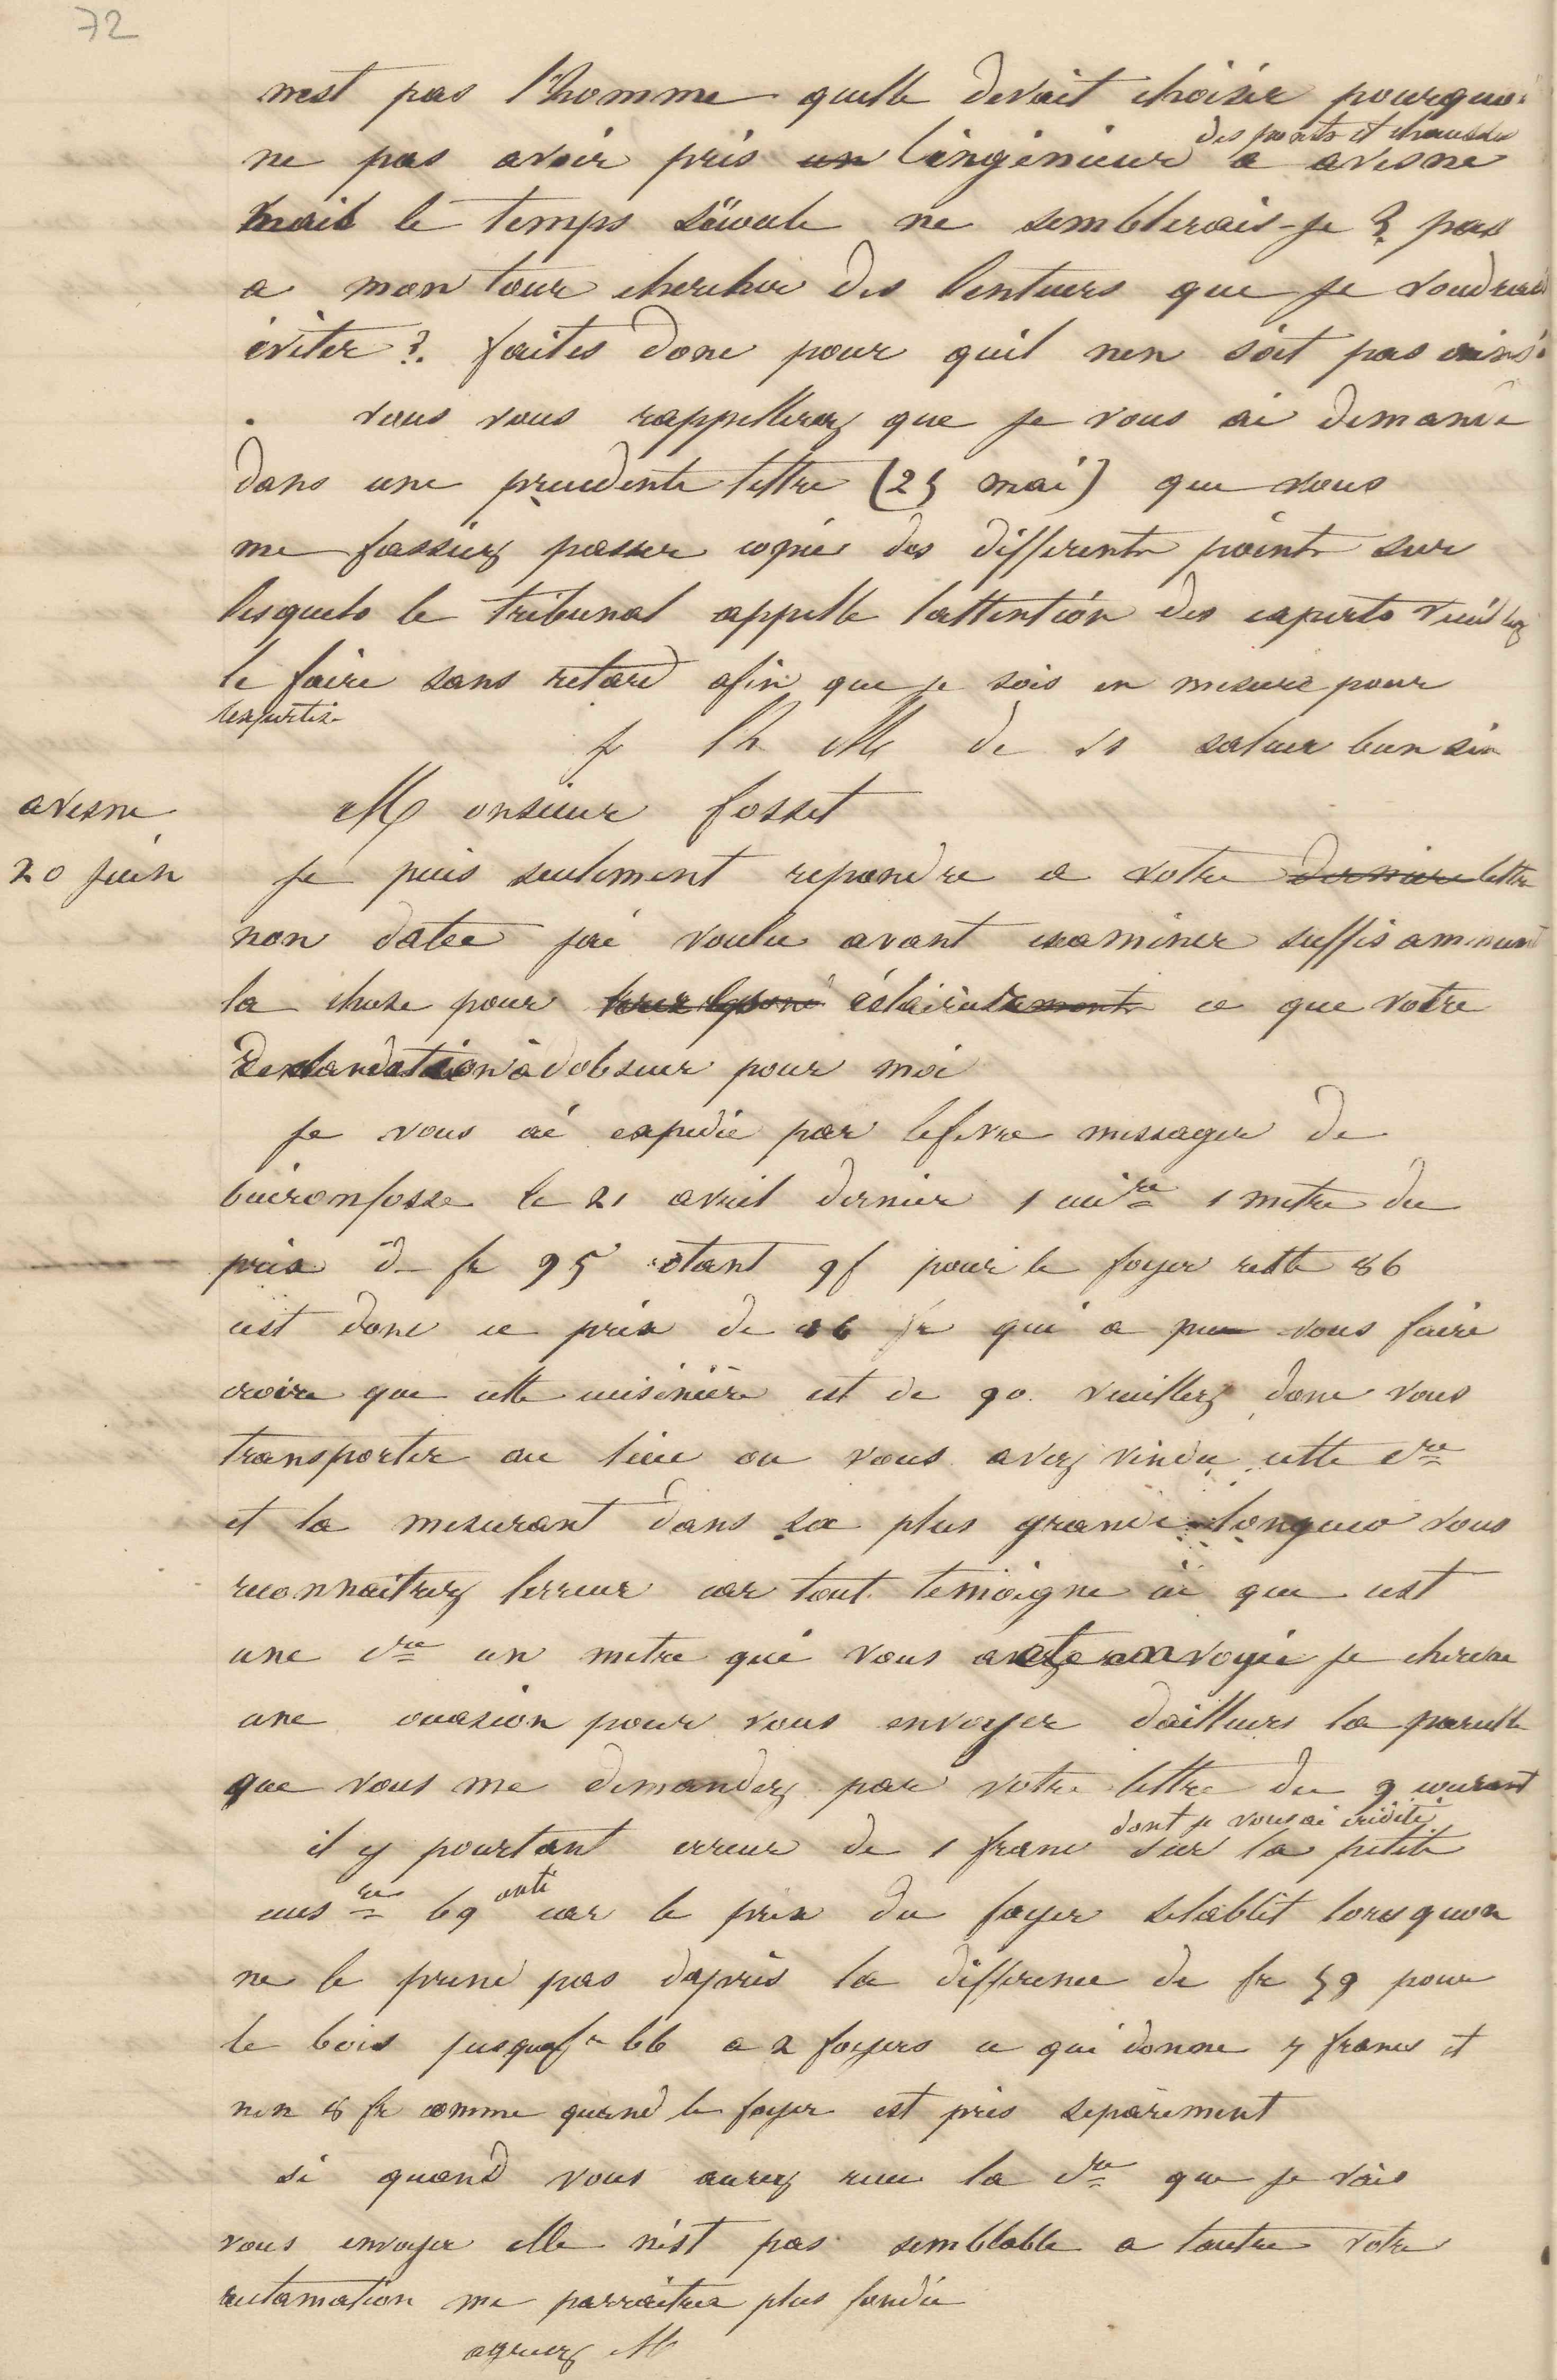 72
nest pas l'homme quelle devait choisir pourquoi
ne pas avoir pris un lingénieur des ponts et chaussées a avesne
mais le temps sécoule ne semblerais-je ? pas
a mon tour chercher des lenteurs que je voudrais
éviter ? faites donc pour quil nen soit pas ainsi
vous vous rappellerez que je vous ai demandé
dans une precedente lettre (25 mai) que vous
me fassiez passer copie des differents points sur
lesquels le tribunal appelle lattention des experts veuillez
le faire sans retard afin que je sois en mesure pour
lexpertise
j lh M de vs saluer bien sin
avesne
20 juin
Monsieur fosset
je puis seulement repondre a votre derniere lettre
non datée jai voulu avant examiner suffisamment
la chose pour ce que votre
pour moi
je vous ai expedié par lefevre messager de
buironfosse le 21 avril dernier 1 cuire 1 metre du
prix d fr 95 otant 9f pour le foyer reste 86
cest donc ce prix de 86 fr qui a pu vous faire
croire que cette cuisinière est de 90. veuillez donc vous
transporter au lieu ou vous avez vendu cette cre
et la mesurant dans sa plus grande longueur vous
reconnaitrez lerreur car tout temoigne ici que cest
une cre un metre qui vous a été envoyée je cherche
une occasion pour vous envoyer dailleurs la pareille
que vous me demandez par votre lettre du 9 courant
il y pourtant erreur de 1 franc dont je vous ai crédité sur la petite
cuis re 69 cent car le prix du foyer setablit lorsquon
ne le prend pas dapres la difference de fr 59 pour
le bois jusqua fr 66 a 2 foyers ce qui donne 7 francs et
non 8 fr comme quand le foyer est pris separement
si quand vous aurez recu la cre que je vais
vous envoyer elle n'est pas semblable a lautre votre
reclamation me parraitra plus fondée
agreez M